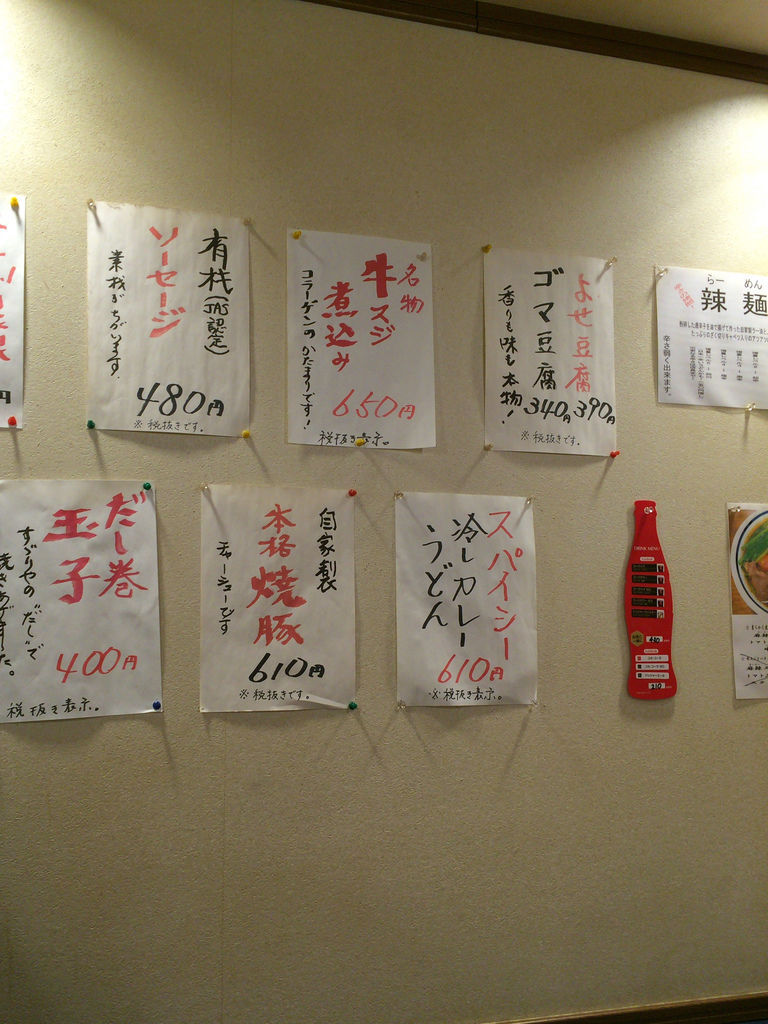 有栈(JAS認定)
ソーセージ
業栈がちがいます.
480円
※税抜きです。
名物
牛スジ
煮込み
コラーゲンのかたまりです!
650円
税抜き表示。
よせ豆腐
ゴマ豆腐
香りも味も本物!
390円
340円
※税抜きです。
らー めん
辣 麺
辛さ弱く出来ます。
だし巻
玉子
すゞりやの"だし"で
焼きあげました。
400円
税抜き表示。
自家製
本格焼豚
チャーシューです
610円
※税抜きです。
スパイシー
冷しカレー
うどん
610円
※税抜き表示。
DRINK MENU